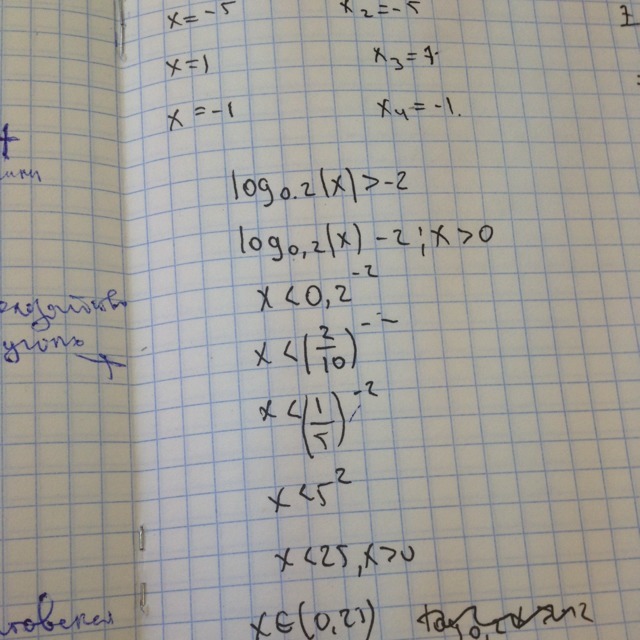 x=-5 x₂=-5
x=1 x₃=1
x=-1 x₄=-1.
log₀.₂(x)>-2
log₀,₂(x)-2; x>0
x<0,2⁻²
x<(2/10)⁻⁻
x<(1/5)⁻²
x<5²
x<25, x>0
x∈(0,25)